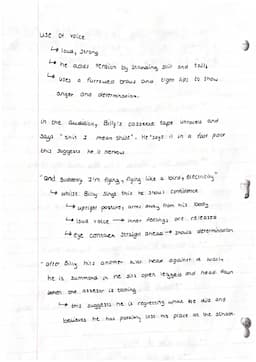 use of voice
↳ loud, strong
↳ he adds tension by standing still and tall,
↳ uses a furrowed brows and tight lips to show
anger and determination.
in the audition, Billy's cassette tape unravels and
says "shit I mean shite". He says it in a fast pace
this suggests he is nervous
"and suddenly I'm flying, flying like a bird, electricity"
↳ whilst Billy sings this he shows confidence
↳ upright posture, arms away from his body
↳ loud voice → inner feelings are released
↳ eye contact straight ahead → shows determination
"after Billy hits another kid head against a wall,
he is summond in he sits open legged and head down
when the assessor is talking
↳ this suggests he is regretting what he did and
believes he has lost his place at the school.